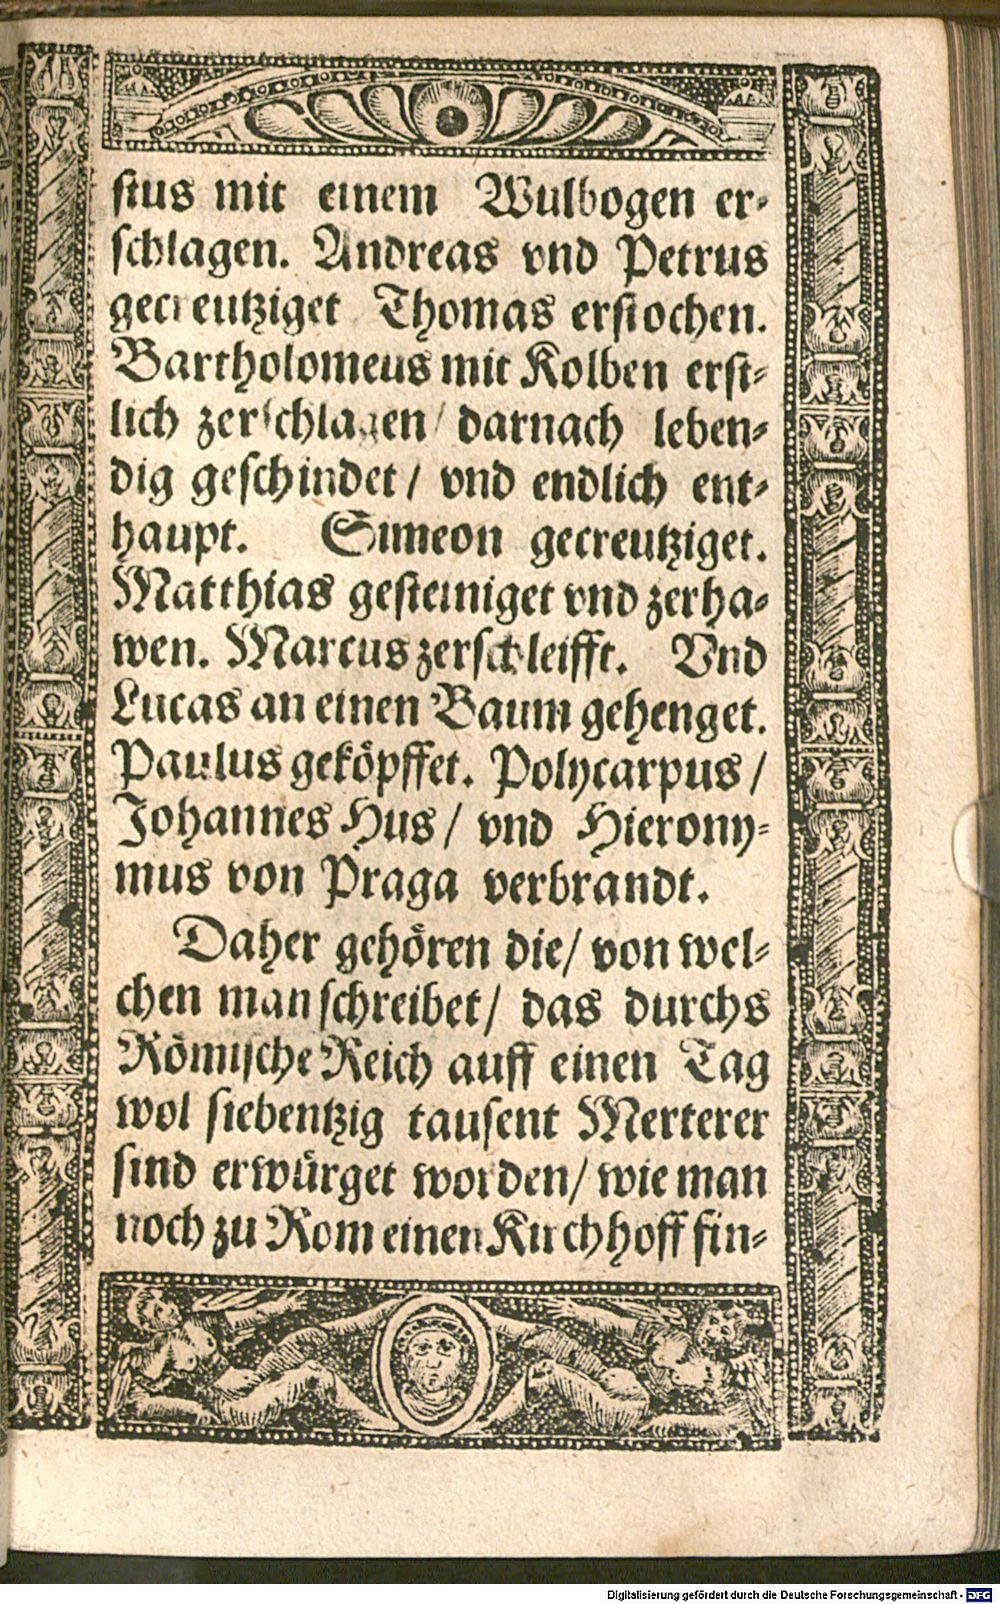 stus mit einem Wulbogen er-
schlagen. Andreas vnd Petrus
gecreutziget Thomas erstochen.
Bartholomeus mit Kolben erst-
lich zerschlagen / darnach leben-
dig geschindet / vnd endlich ent-
haupt. Simeon gecreutziget.
Matthias gesteiniget vnd zerha-
wen. Marcus zerschleifft. Vnd
Lucas an einen Baum gehenget.
Paulus geköpffet. Polycarpus /
Johannes Hus / vnd Hierony-
mus von Praga verbrandt.
Daher gehören die / von wel-
chen man schreibet / das durchs
Römische Reich auff einen Tag
wol siebentzig tausent Merterer
sind erwürget worden / wie man
noch zu Rom einen Kirchhoff fin-
Digitalisierung gefördert durch die Deutsche Forschungsgemeinschaft - DFG